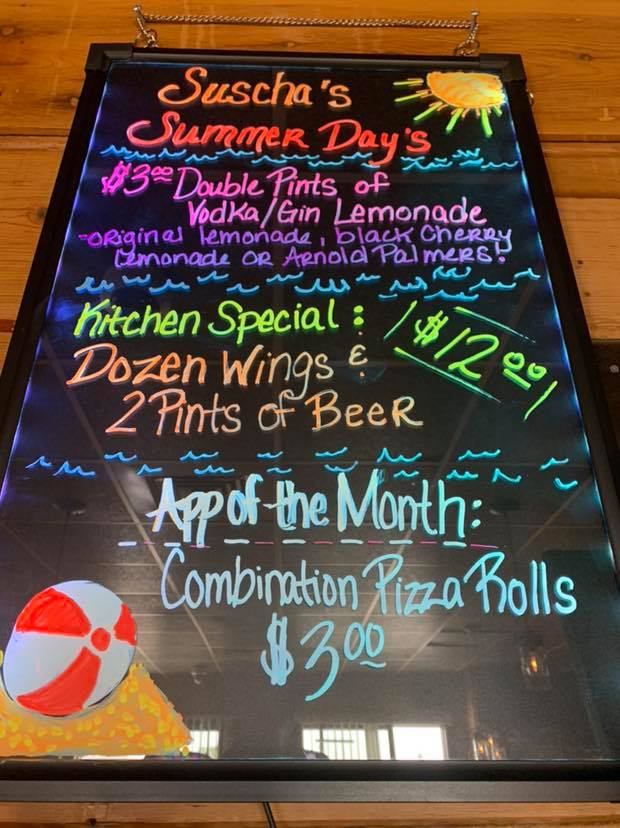 Suscha's
Summer Day's
$3.00 Double Pints of
Vodka/Gin Lemonade
-original lemonade, black Cherry
Lemonade OR Arnold Palmers!
Kitchen Special: $12.00
Dozen Wings &
2 Pints of Beer
App of the Month:
Combination Pizza Rolls
$3.00